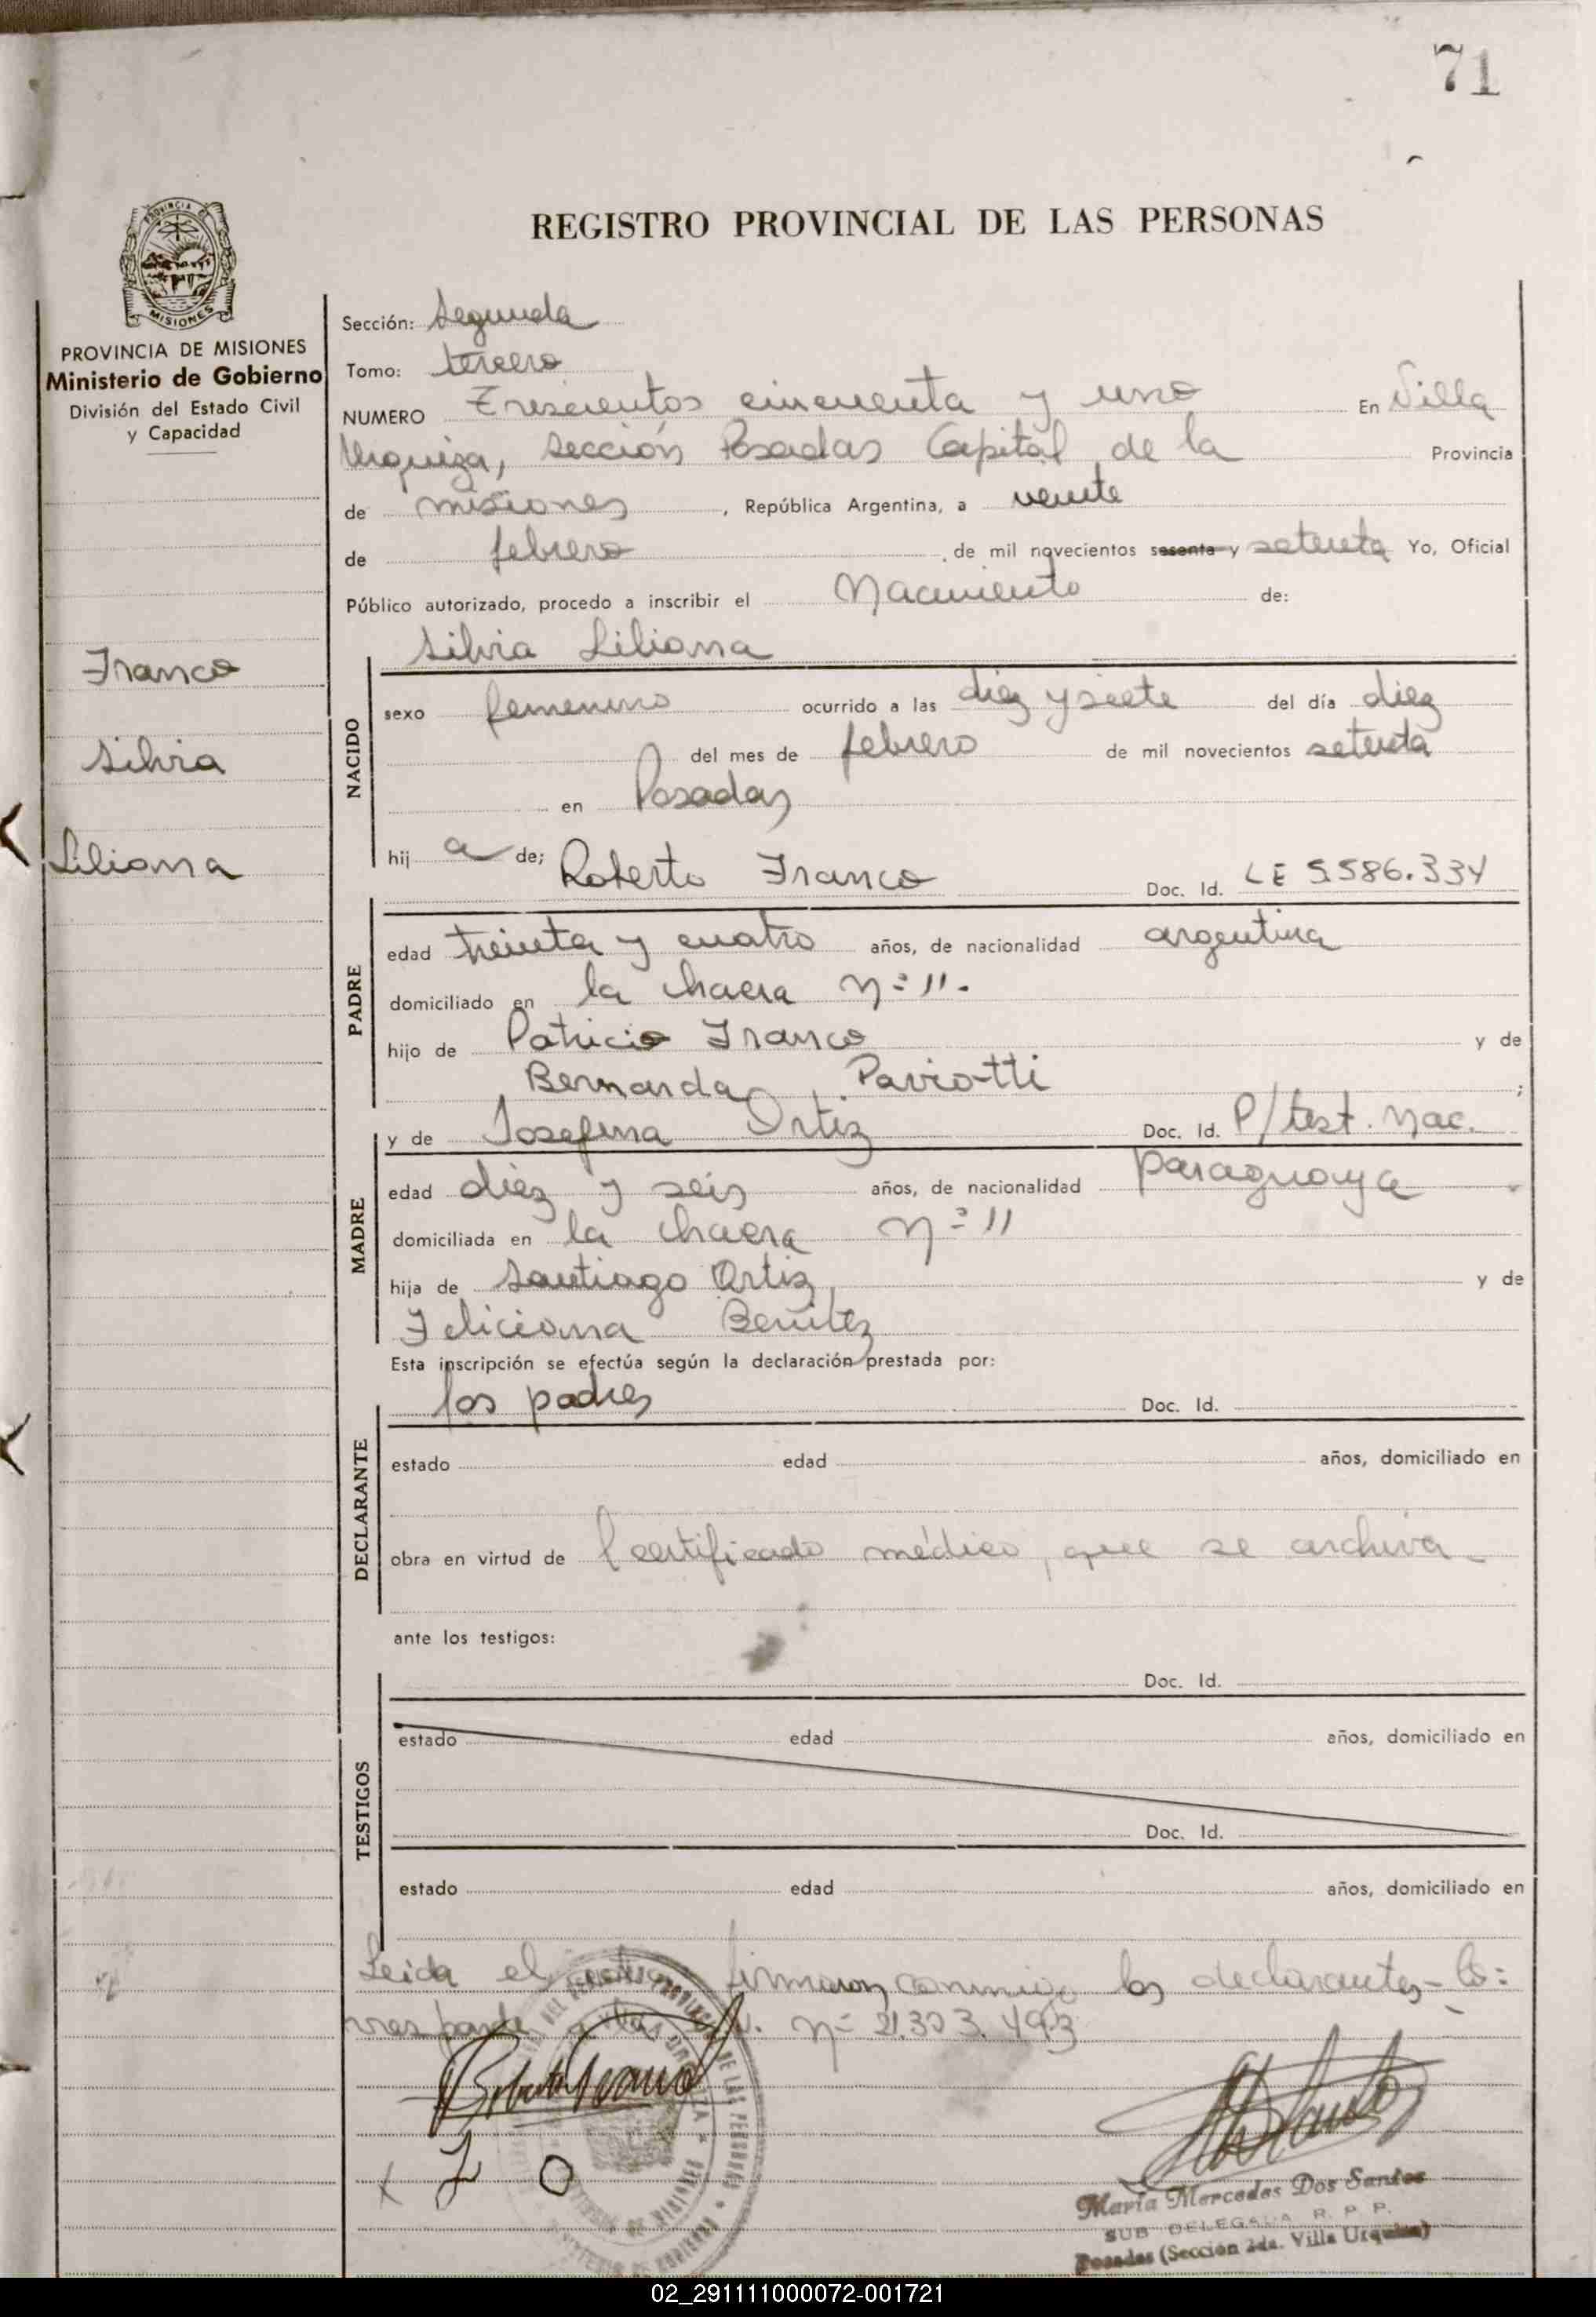 71
REGISTRO PROVINCIAL DE LAS PERSONAS
PROVINCIA DE MISIONES
Ministerio de Gobierno
División del Estado Civil
y Capacidad
Franco
Silvia
Liliana
Sección: Segunda
Tomo: tercero
NUMERO Trescientos cincuenta y uno En Villa
Urquiza, Sección Posadas Capital de la Provincia
de misiones, República Argentina, a veinte
de febrero de mil novecientos sesenta y setenta Yo, Oficial
Público autorizado, procedo a inscribir el Nacimiento de:
Silvia Liliana
NACIDO
sexo femenino ocurrido a las diez y siete del día diez
del mes de febrero de mil novecientos setenta
en Posadas
hij a de; Roberto Franco Doc. Id. LE 5.586.334
PADRE
edad treinta y cuatro años, de nacionalidad argentina
domiciliado en la chacra nº 11.
hijo de Patricio Franco y de
Bernarda Paviotti ;
y de Josefina Ortiz Doc. Id. P/test. Nac.
MADRE
edad diez y seis años, de nacionalidad paraguaya
domiciliada en la chacra nº 11
hija de Santiago Ortiz y de
Feliciana Benitez
Esta inscripción se efectúa según la declaración prestada por:
los padres Doc. Id.
DECLARANTE
estado edad años, domiciliado en
obra en virtud de certificado médico, que se archiva
ante los testigos:
Doc. Id.
TESTIGOS
estado edad años, domiciliado en
Doc. Id.
estado edad años, domiciliado en
Leída el acta, firmaron conmigo los declarantes- Co=
rresponde a nº 21.303.493
Roberto Franco
J O
María Mercedes Dos Santos
SUB DELEGADA R. P. P.
Posadas (Sección 2da. Villa Urquiza)
02_291111000072-001721